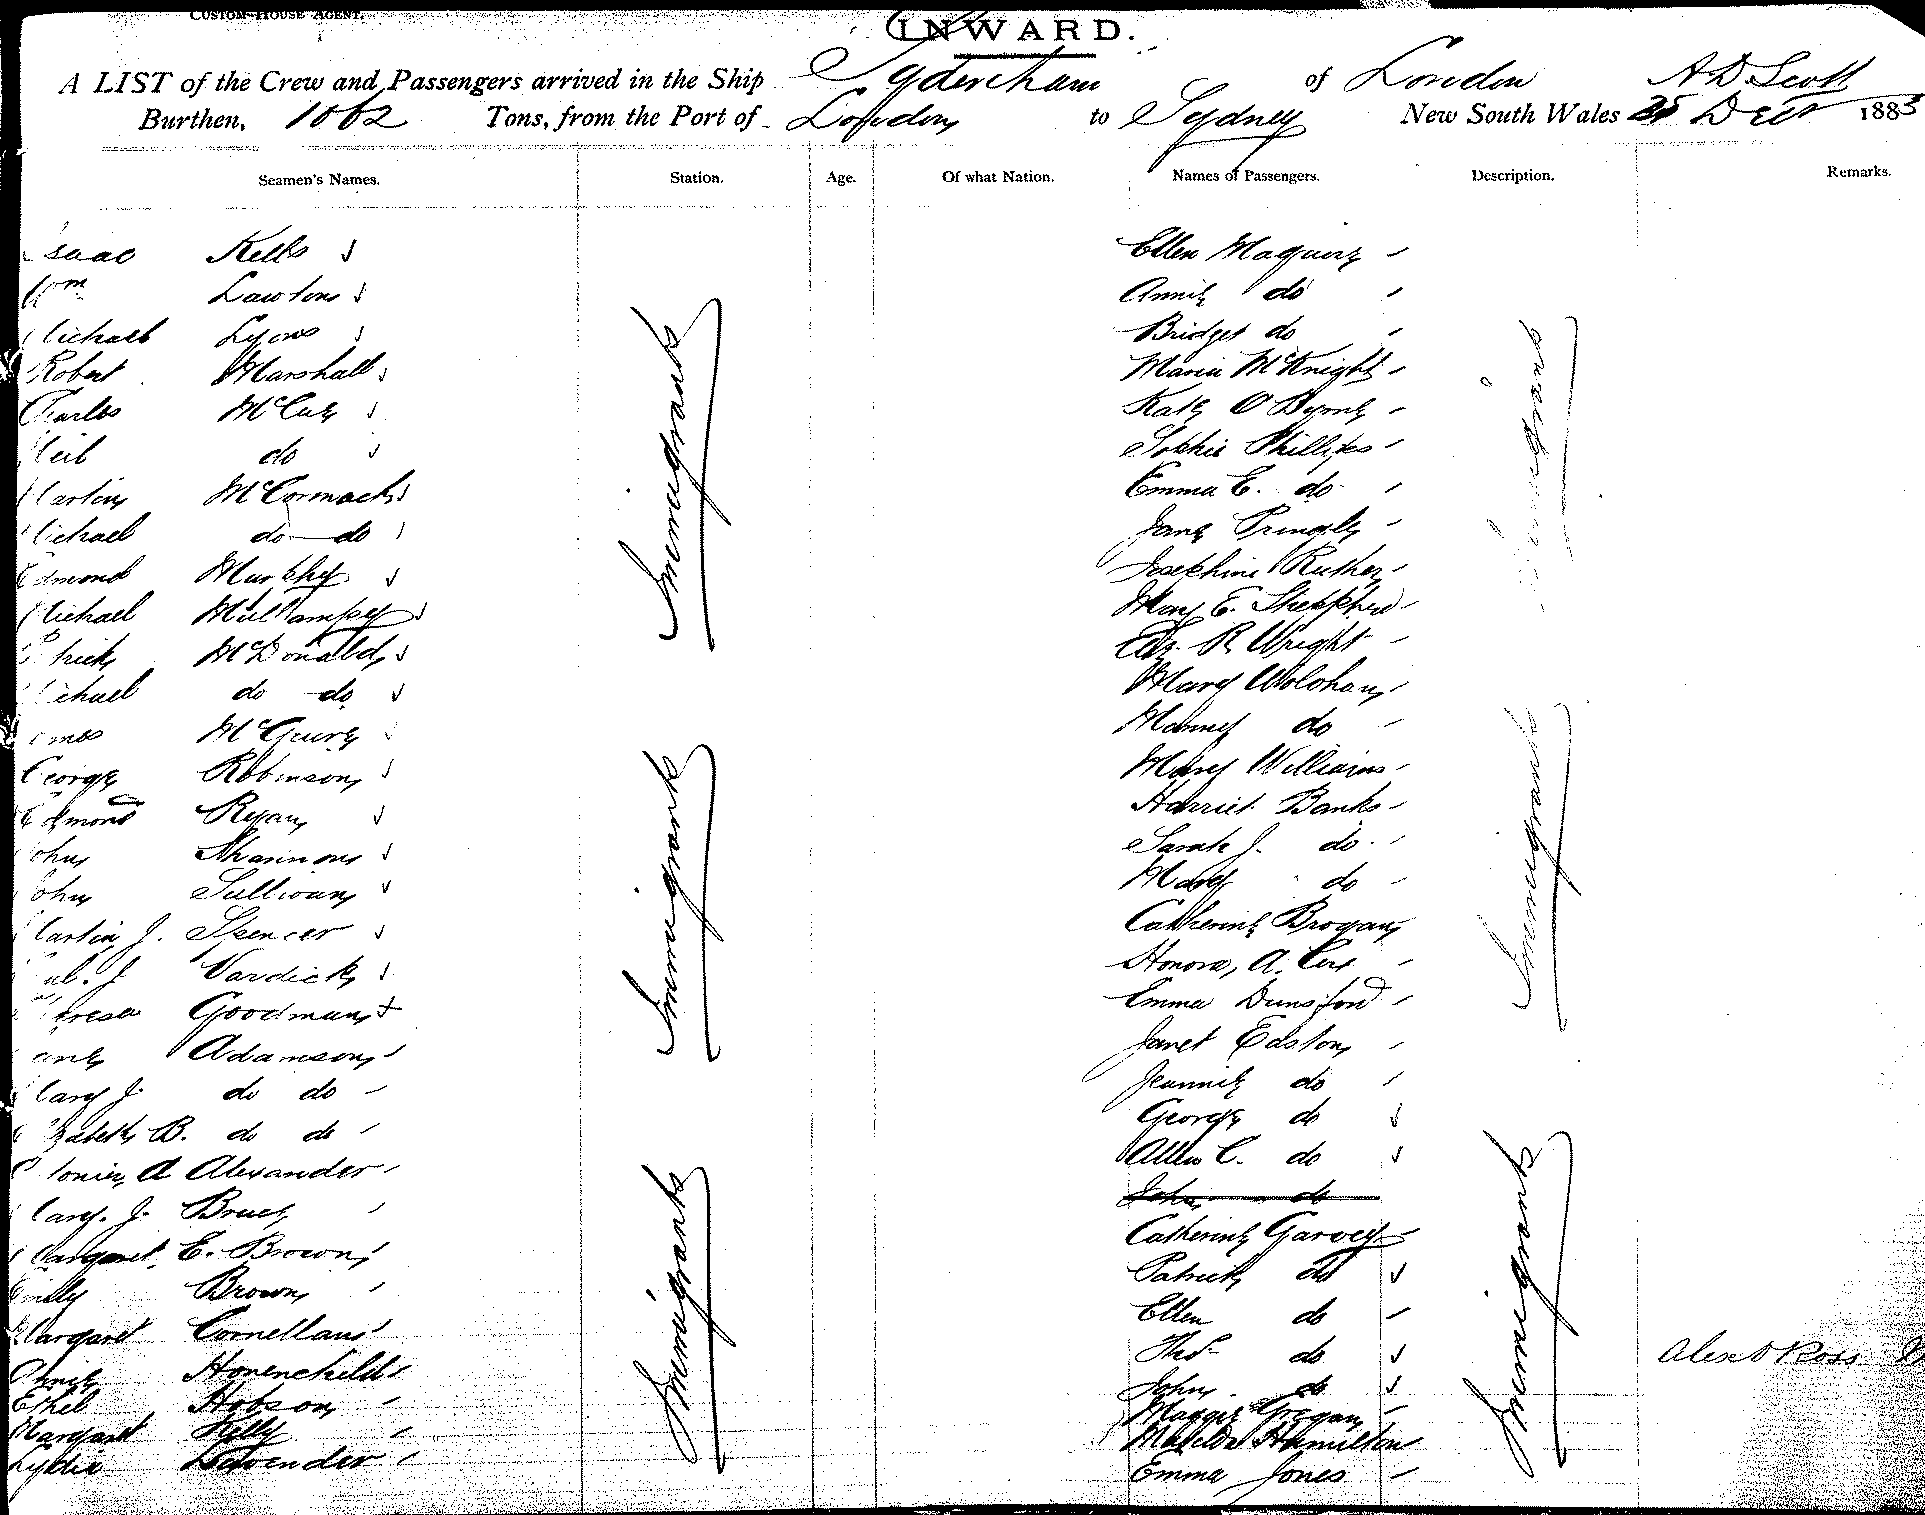 CUSTOM-HOUSE AGENT.
INWARD.
A LIST of the Crew and Passengers arrived in the Ship Sydenham of London A D Scott
Burthen, 1062 Tons, from the Port of London to Sydney New South Wales 25 Decr 1883
Seamen's Names. Station. Age. Of what Nation. Names of Passengers. Description. Remarks.
Isaac Kells
Wm Lawton
Michael Lyons
Robert Marshall
Charles McCue
Neil do
Martin McCormack
Michael do do
Edmond Murphy
Michael
Patrick McDonald
Michael do do
James
George Robinson
Edmond Ryan
John Shannon
John Sullivan
Martin J. Spencer
J Vardick
Theresa Goodman
Jane Adamson
Mary J do do
Elizabeth B. do do
A Alexander
Mary J. Bruce
Margaret E. Brown
Emily Brown
Margaret Cornellan
Annie
Ethel Hobson
Margaret Kelly
Lydia Lavender
Immigrants
Immigrants
Immigrants
Ellen Maguire
Annie do
Bridget do
Maria McKnight
Kate O'Byrne
Sophie Phillips
Emma E. do
Jane Pringle
Josephine Ruther
Mary E. Shepherd
Eliz. R. Wright
Mary Wolohan
do
Mary Williams
Harriet Banks
Sarah J. do
Mary do
Catherine Brogan
Honora A.
Emma Dunsford
Janet Easton
Jeannie do
George do
Allen C. do
John do
Catherine Garvey
Patrick do
Ellen do
Thos do
John do
Maggie Grogan
Matilda Hamilton
Emma Jones
Immigrants
Immigrants
Immigrants
Alexr Ross